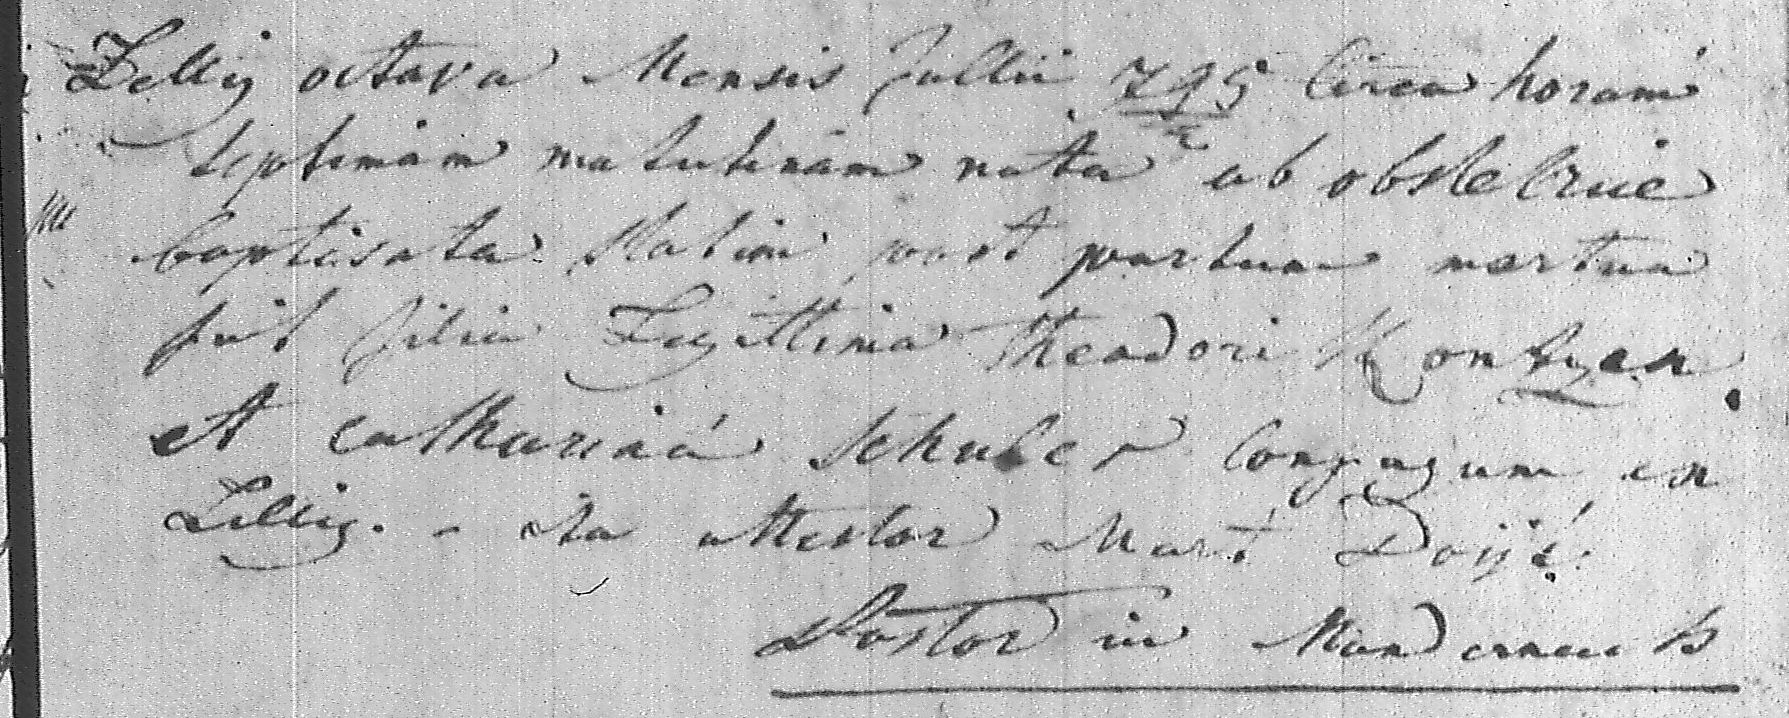 Zellig octava Mensis Jullii 795 Circa horam
septimam matutinam nata ab obstetrice
baptisata statim post partum mortua
fuit filia Legittima Theodori Kontzen
et catharina Schuler Conjugum in
Lellig. - ita attestor Mart
Pastor in Mandernach